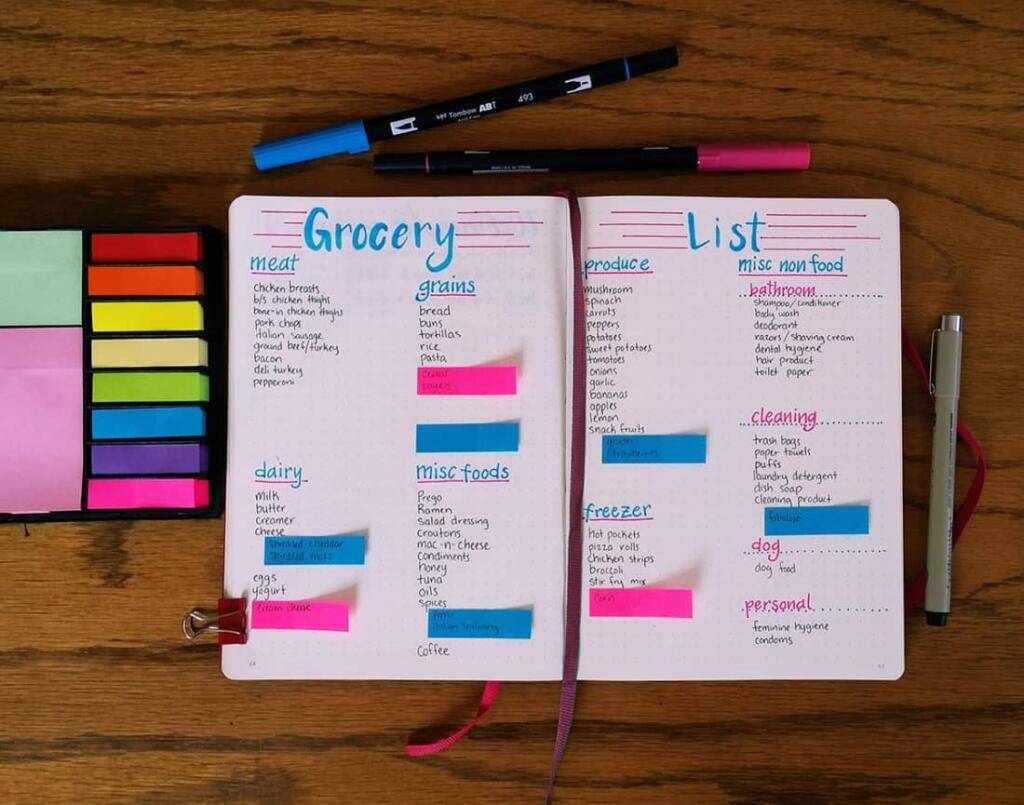 Tombow ABT
493
Grocery
meat
chicken breasts
b/s chicken thighs
bone-in chicken thighs
pork chops
italian sausage
ground beef/turkey
bacon
deli turkey
pepperoni
grains
bread
buns
tortillas
rice
pasta
cereal
bagels
dairy
milk
butter
creamer
cheese
shredded cheddar
shredded mozz
eggs
yogurt
cream cheese
misc foods
Prego
Ramen
Salad dressing
croutons
mac-n-cheese
Condiments
honey
tuna
Oils
Spices
italian seasoning
Coffee
List
produce
mushroom
spinach
carrots
peppers
potatoes
sweet potatoes
tomatoes
onions
garlic
bananas
apples
lemon
snack fruits
grapes
strawberries
freezer
Hot pockets
pizza rolls
chicken strips
broccoli
stir fry mix
corn
misc non food
bathroom
shampoo/conditioner
body wash
deodorant
razors/shaving cream
dental hygiene
hair product
toilet paper
cleaning
trash bags
paper towels
puffs
laundry detergent
dish soap
cleaning product
dog
dog food
personal
feminine hygiene
condoms